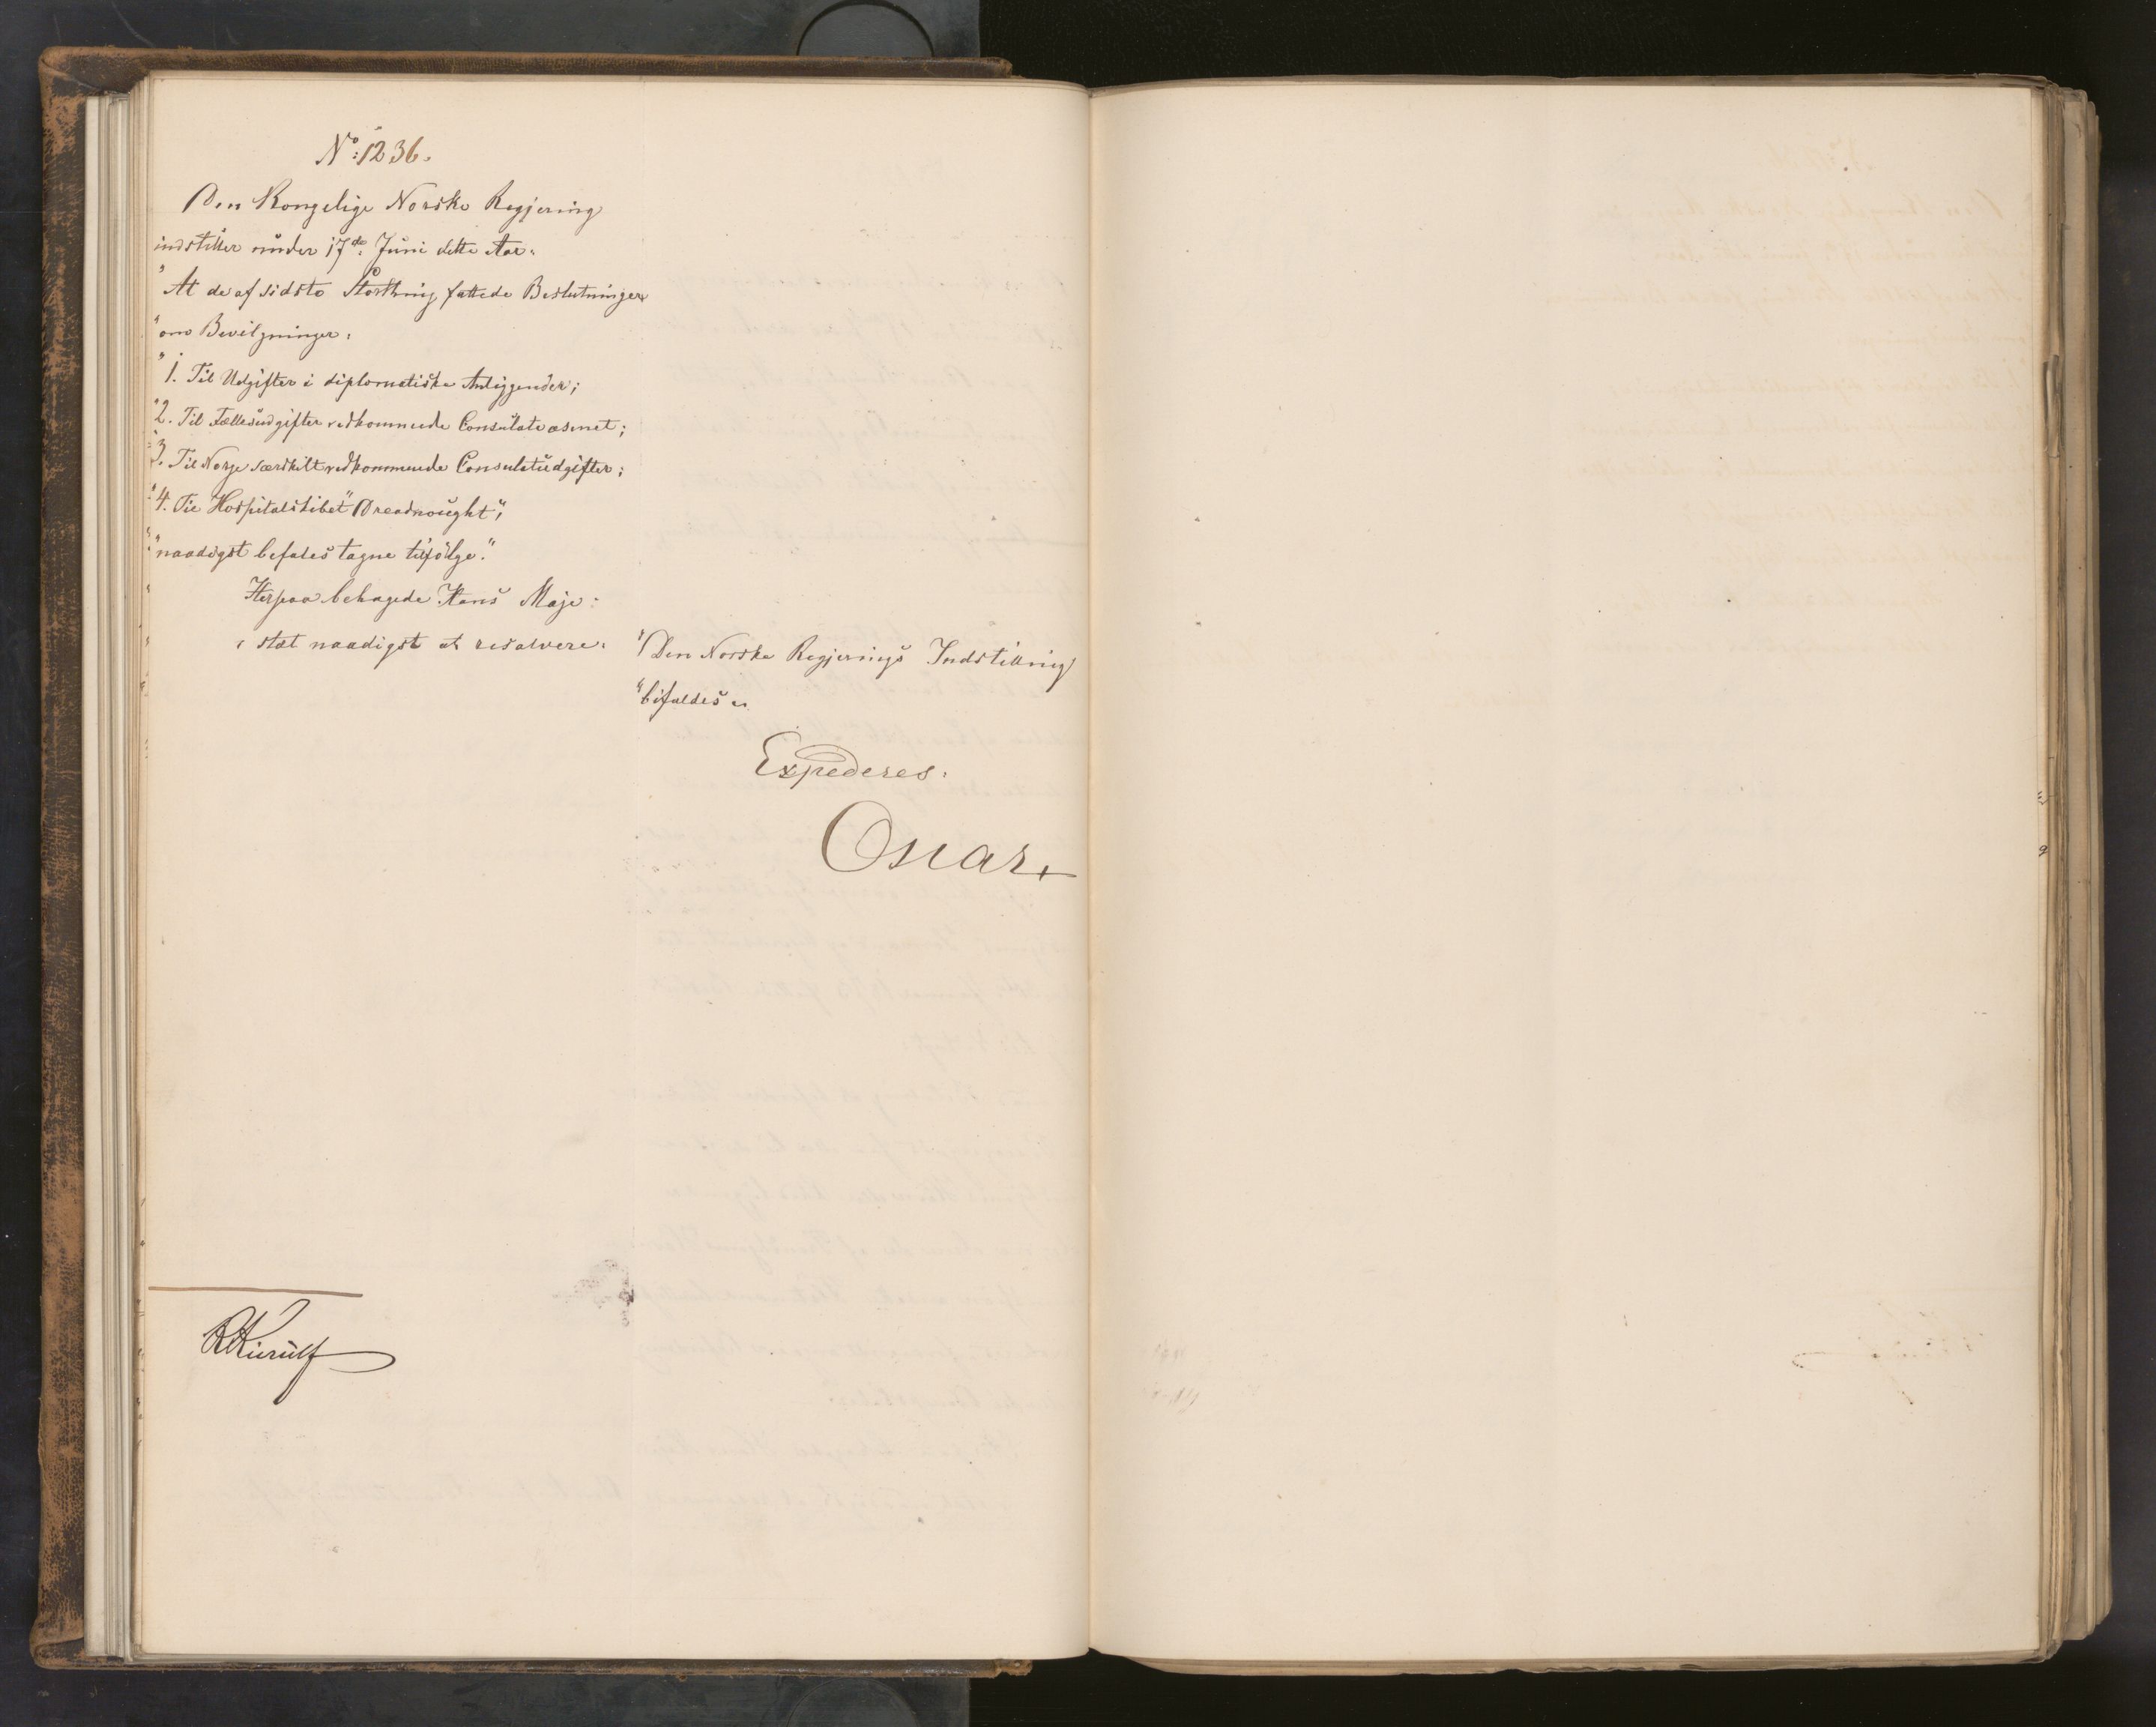 No: 1236.
Den Kongelige Norske Regjering
indstiller under 17de Juni dette Aar:
"At de af sidste Storthing fattede Beslutninger
"om Bevilgninger:
"1. Til Udgifter i diplomatiske Anliggender;
"2. Til Fællesudgifter vedkommende Consulatvæsenet;
"3. Til Norge særskilt vedkommende Consulatudgifter;
"4. Til Hospitalskibet "Dreadnought";
"naadigst befales tagne tilfölge."
Herpaa behagede Hans Maje:
stæt naadigst at resolvere:
"Den Norske Regjerings Indstilling
"bifaldes"
Expederes:
Oscar
Kierulf